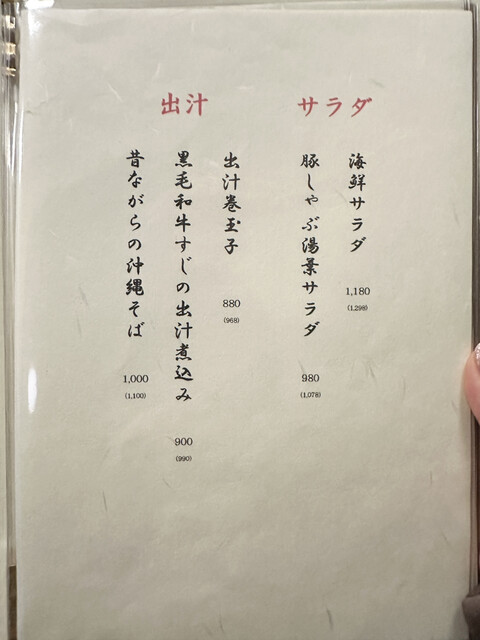 サラダ
海鮮サラダ
1,180
(1,298)
豚しゃぶ湯葉サラダ
980
(1,078)
出汁
出汁巻玉子
880
(968)
黒毛和牛すじの出汁煮込み
900
(990)
昔ながらの沖縄そば
1,000
(1,100)